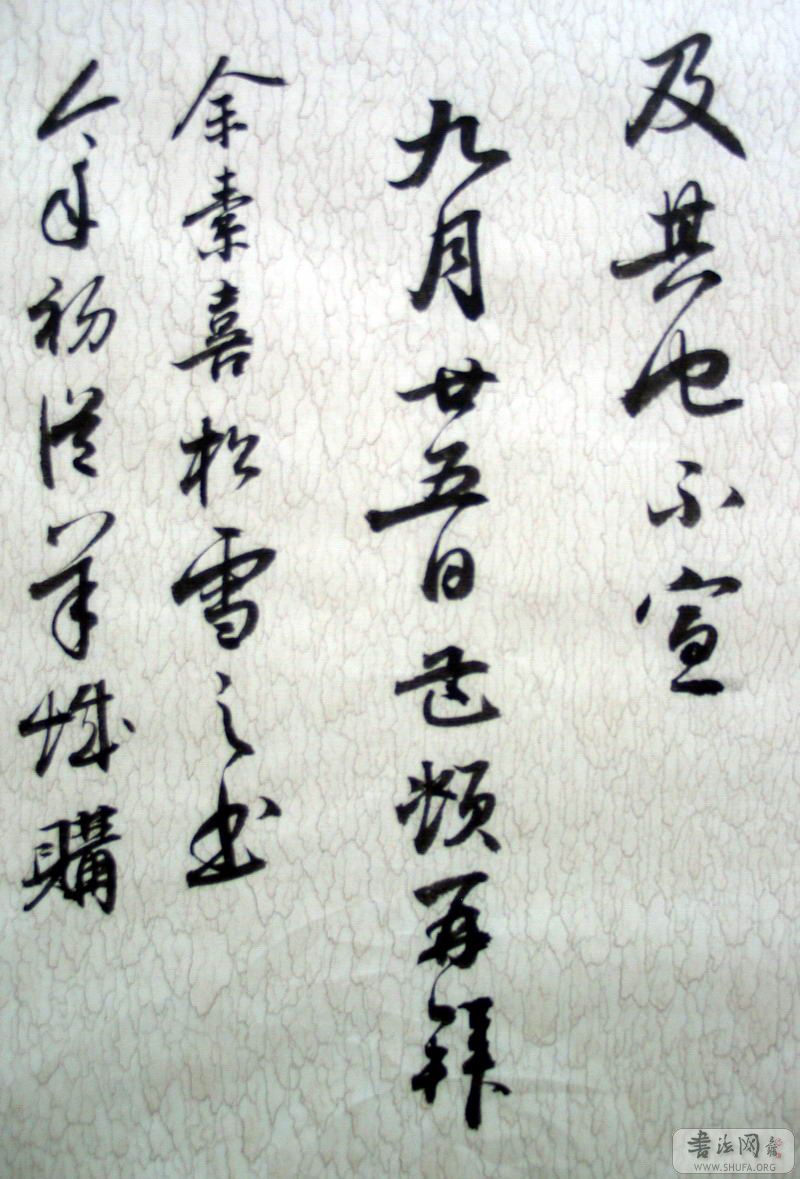 及其他不宣
九月廿五日孟頫再拜
余素喜松雪之書
今年初從羊城購
書法网
WWW.SHUFA.ORG